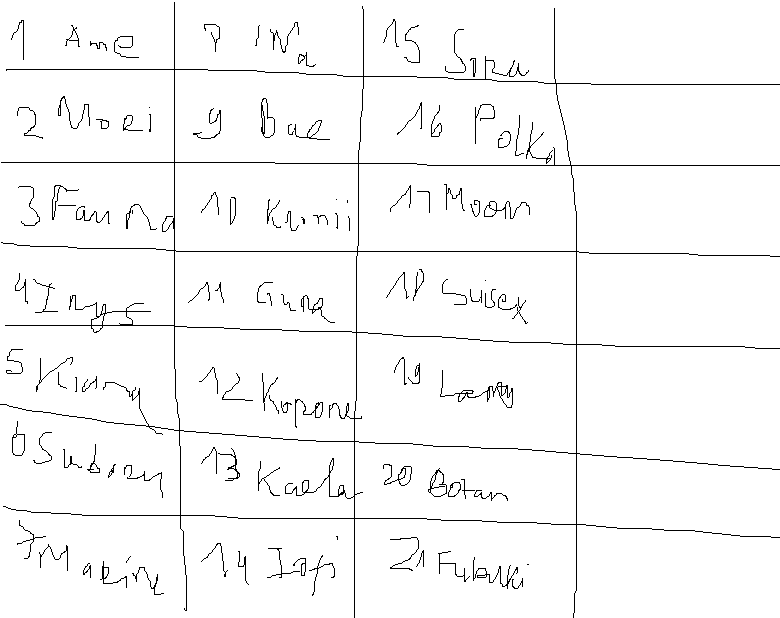 1 Ame
2 Mori
3 Fauna
4 Irys
5 Kiara
6 Subaru
7 Marine
8 INa
9 Bae
10 Kronii
11 Gura
12 Korone
13 Kaela
14 Iofi
15 Sora
16 Polka
17 Moon
18 Suisex
19 Lamy
20 Botan
21 Fubuki